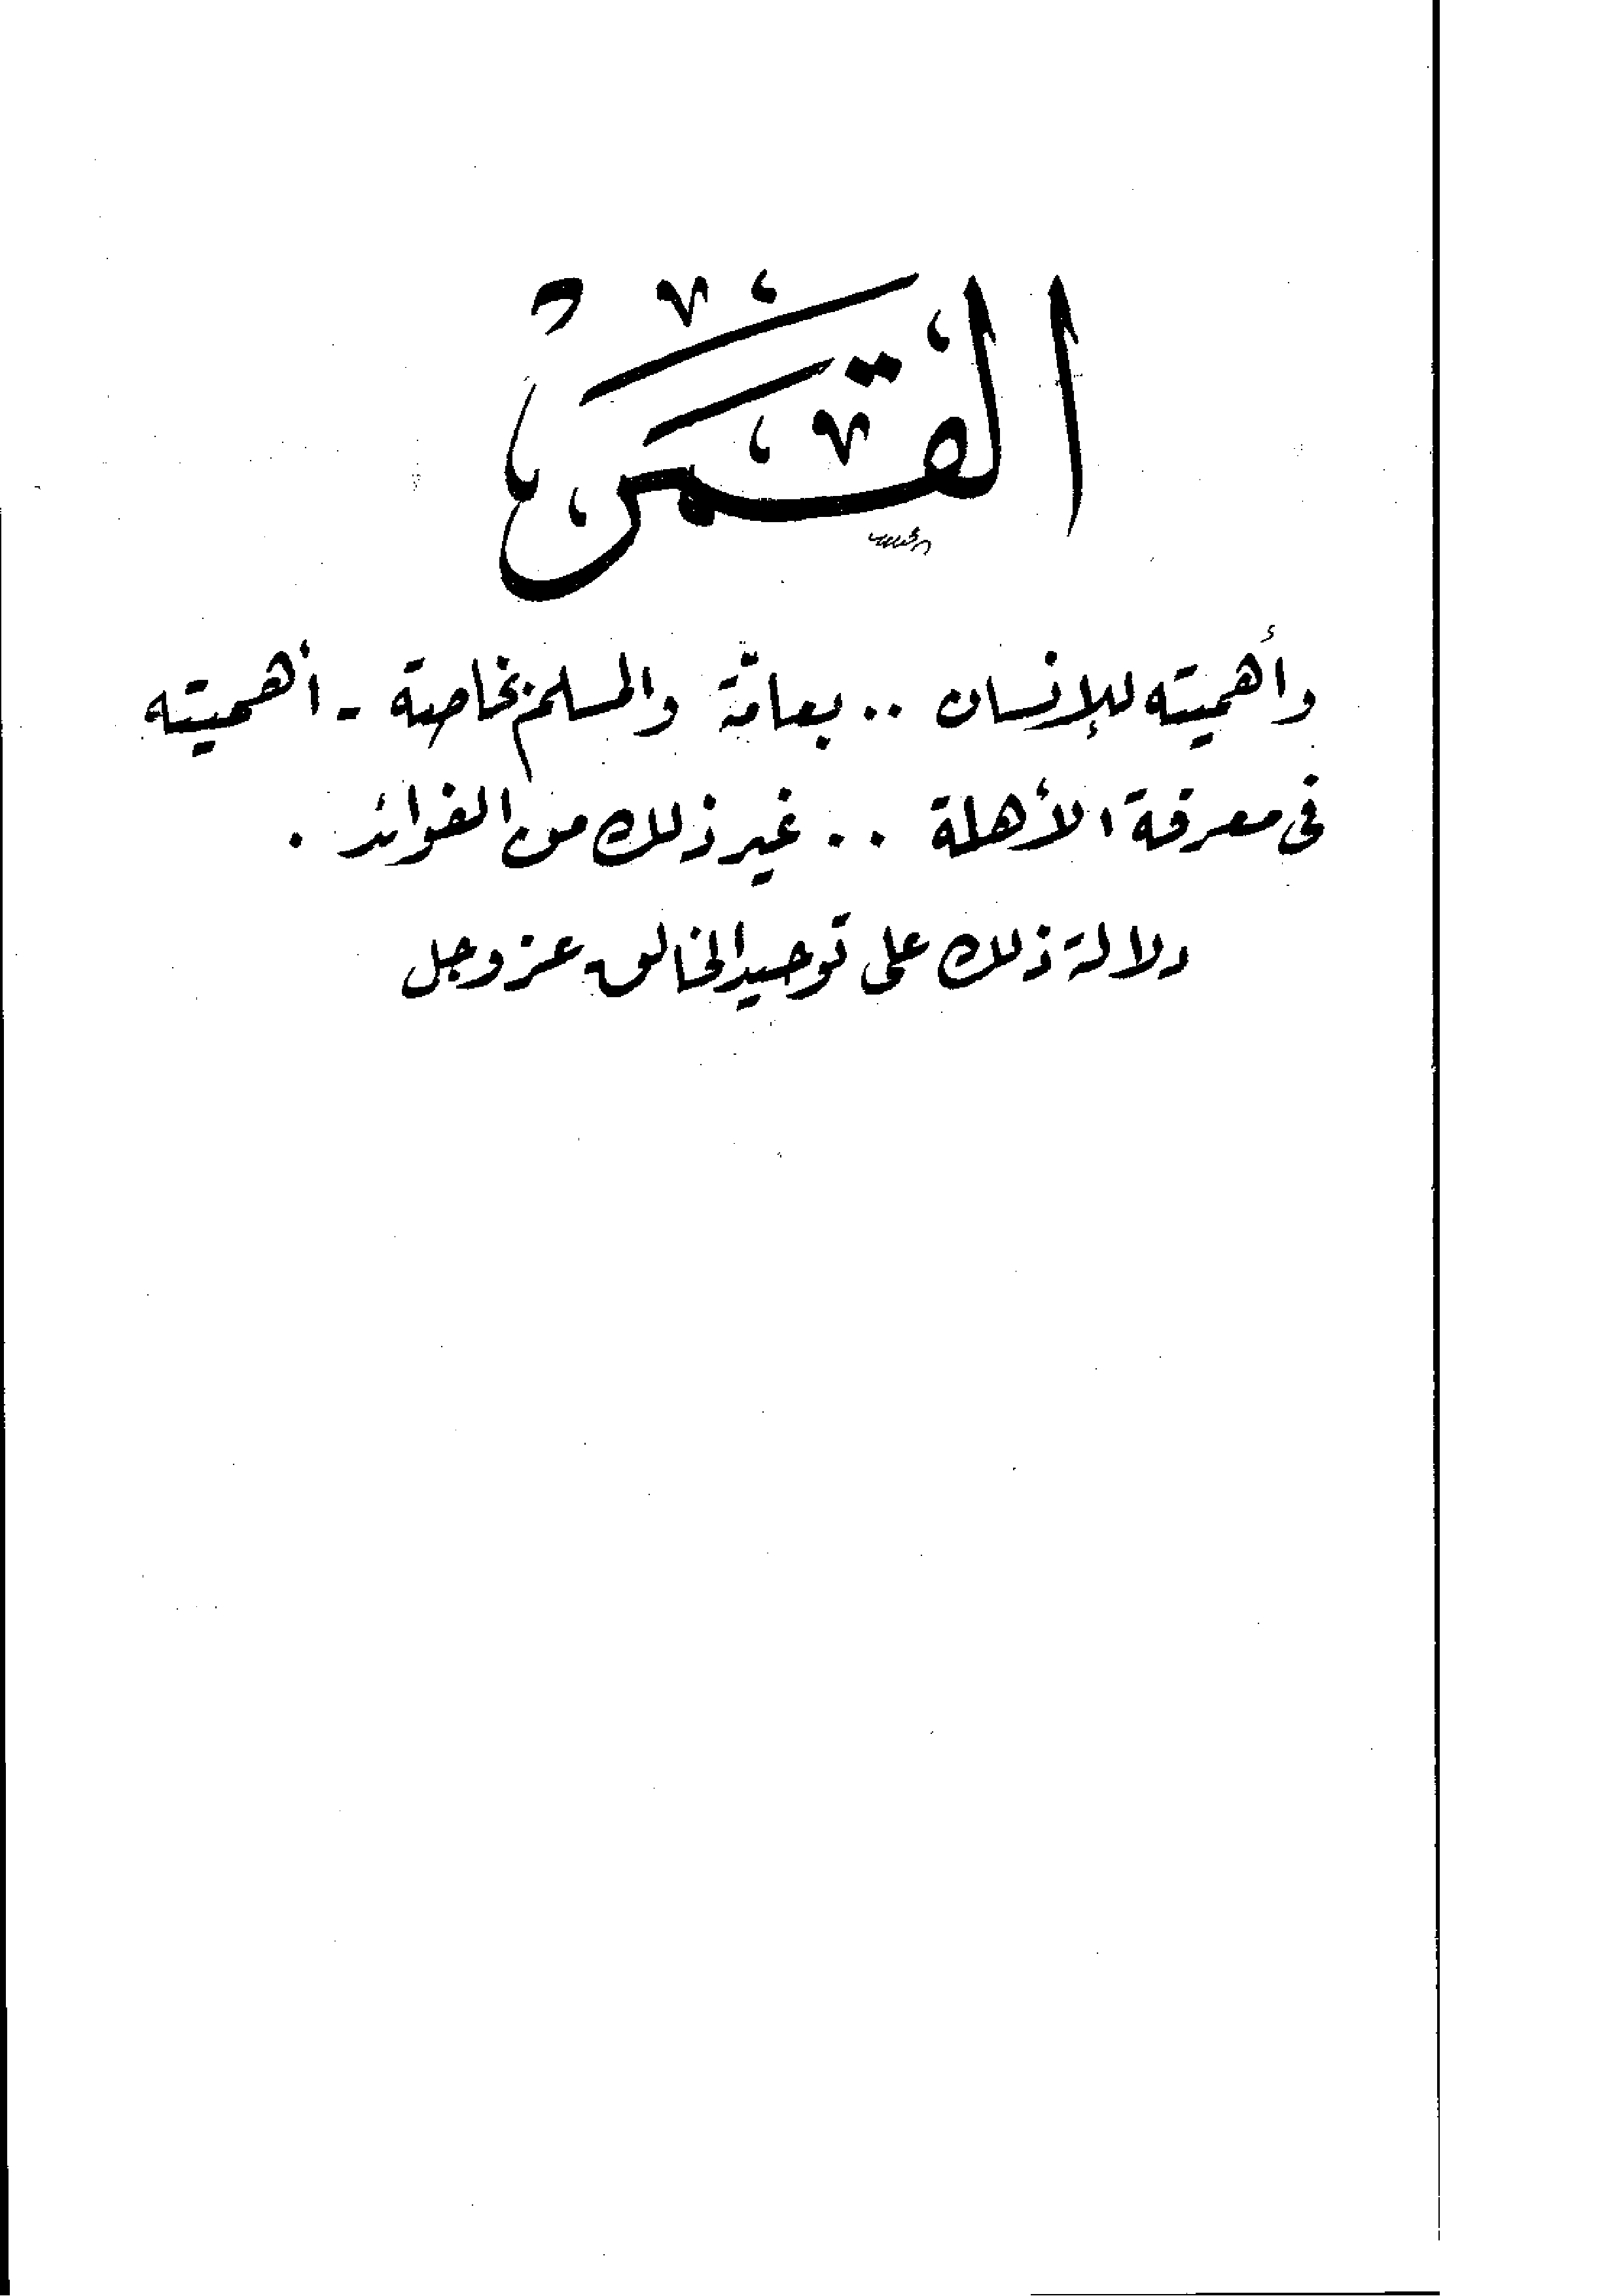 القمر
وأهميته للإنسان .. بعامّة والمسلم بخاصة - أهميته
في معرفة الأهلة .. غير ذلك من الفوائد .
دلالة ذلك على توحيد الخالق عز وجل